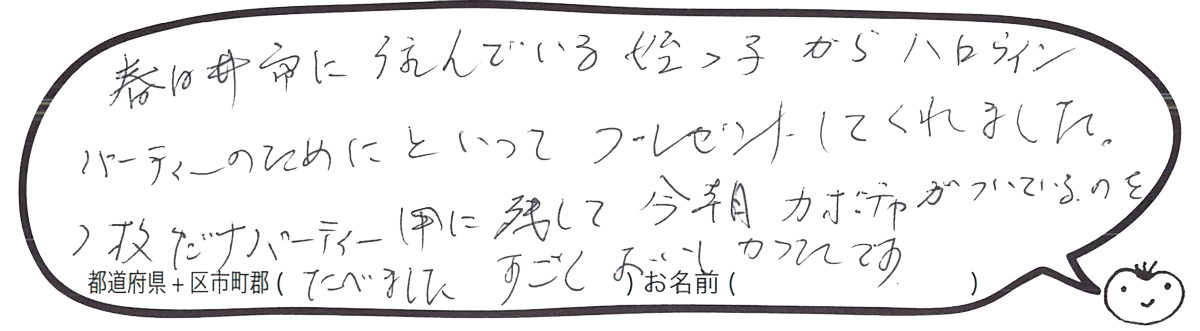 春日井市に住んでいる姪っ子からハロウィン
パーティーのためにといってプレゼントしてくれました。
1枚だけパーティー用に残して今朝カボチャがついているのを
たべました すごくおいしかったです
都道府県+区市町郡( )お名前( )